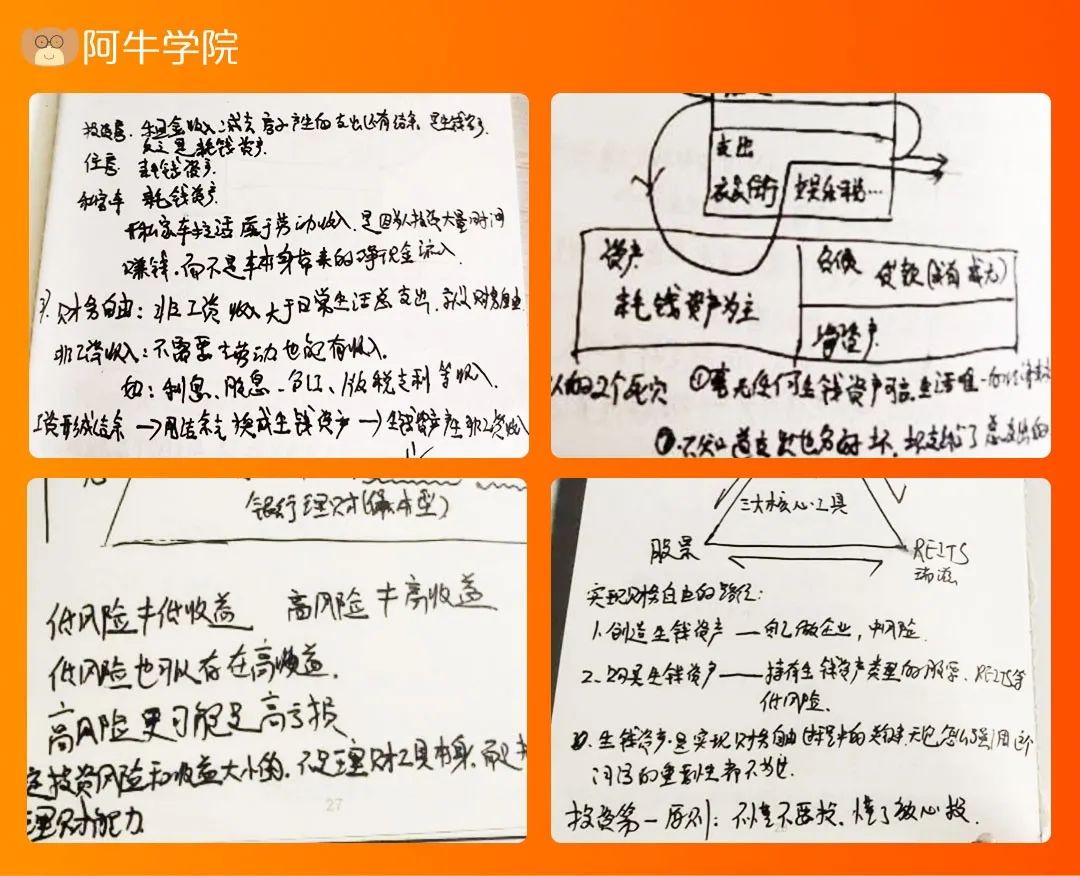 阿牛学院
投资房 租金收入减去房子产生的支出还有结余,是生钱资产
反之是耗钱资产.
住房 耗钱资产.
私家车 耗钱资产.
开私家车生活属于劳动收入,是因为投资大量时间
赚钱,而不是车本身带来的净现金流入
财务自由:非工资收入大于日常生活总支出,就财务自由
非工资收入:不需要去劳动也能有收入.
如:利息、股息、分红、版税专利等收入.
工资形成结余→用结余去换成生钱资产→生钱资产产生非工资收入
支出
衣食住行 娱乐税…
资产
耗钱资产为主
负债 贷款(或有或无)
净资产
的2个死穴 ①毫无任何生钱资产可言,生活唯一的
②不知道
银行理财(保本型)
低风险≠低收益 高风险≠高收益
低风险也可以存在高收益.
高风险更可能是高亏损
定投资风险和收益大小的,不是理财工具本身,而是
理财能力
27
三大核心工具
股票
REITS
实现财务自由的路径:
1.创造生钱资产—自己做企业,中风险.
2.购买生钱资产——持有生钱资产类型的股票、REITS等
低风险.
生钱资产是实现财务自由过程中的关键,无论怎么强调这个
的重要性都不为过.
投资第一原则:不懂不要投,懂了放心投.